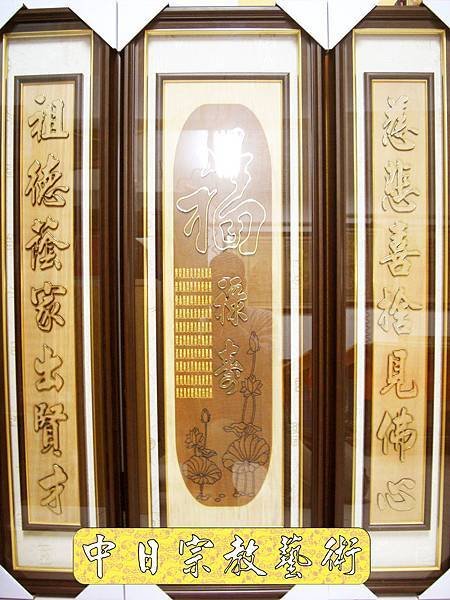 慈悲喜捨見佛心
福
祿
壽
祖德蔭家出賢才
中日宗教藝術